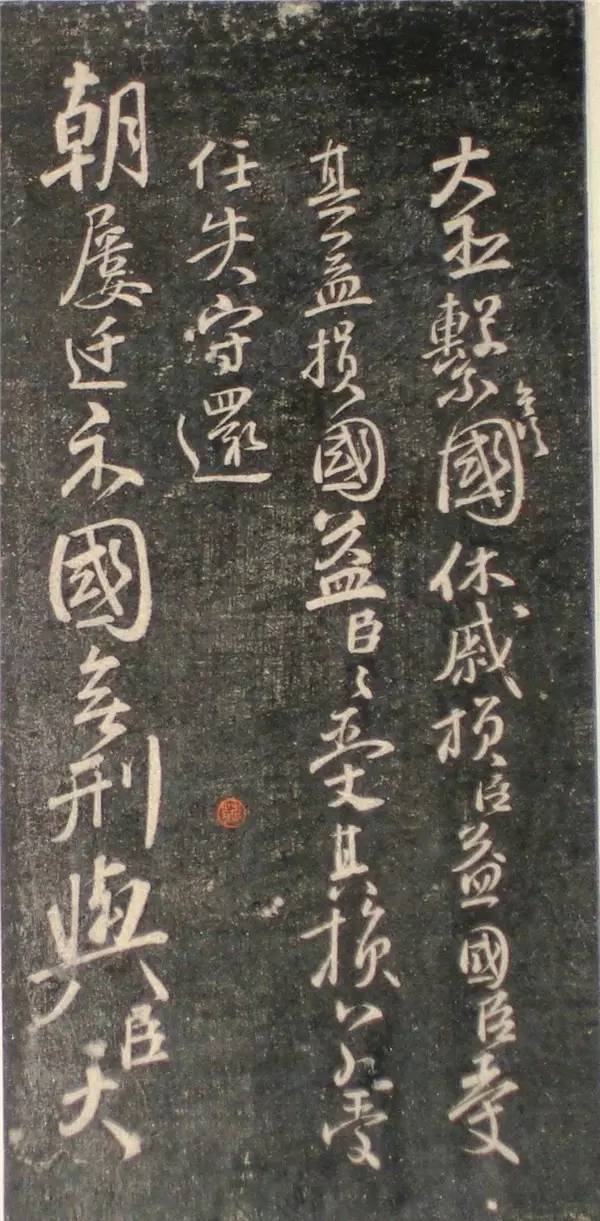 大繫國休戚損臣益國臣受
其益損國益臣〻受其損
任失守還
朝屢迁國無刑與臣天